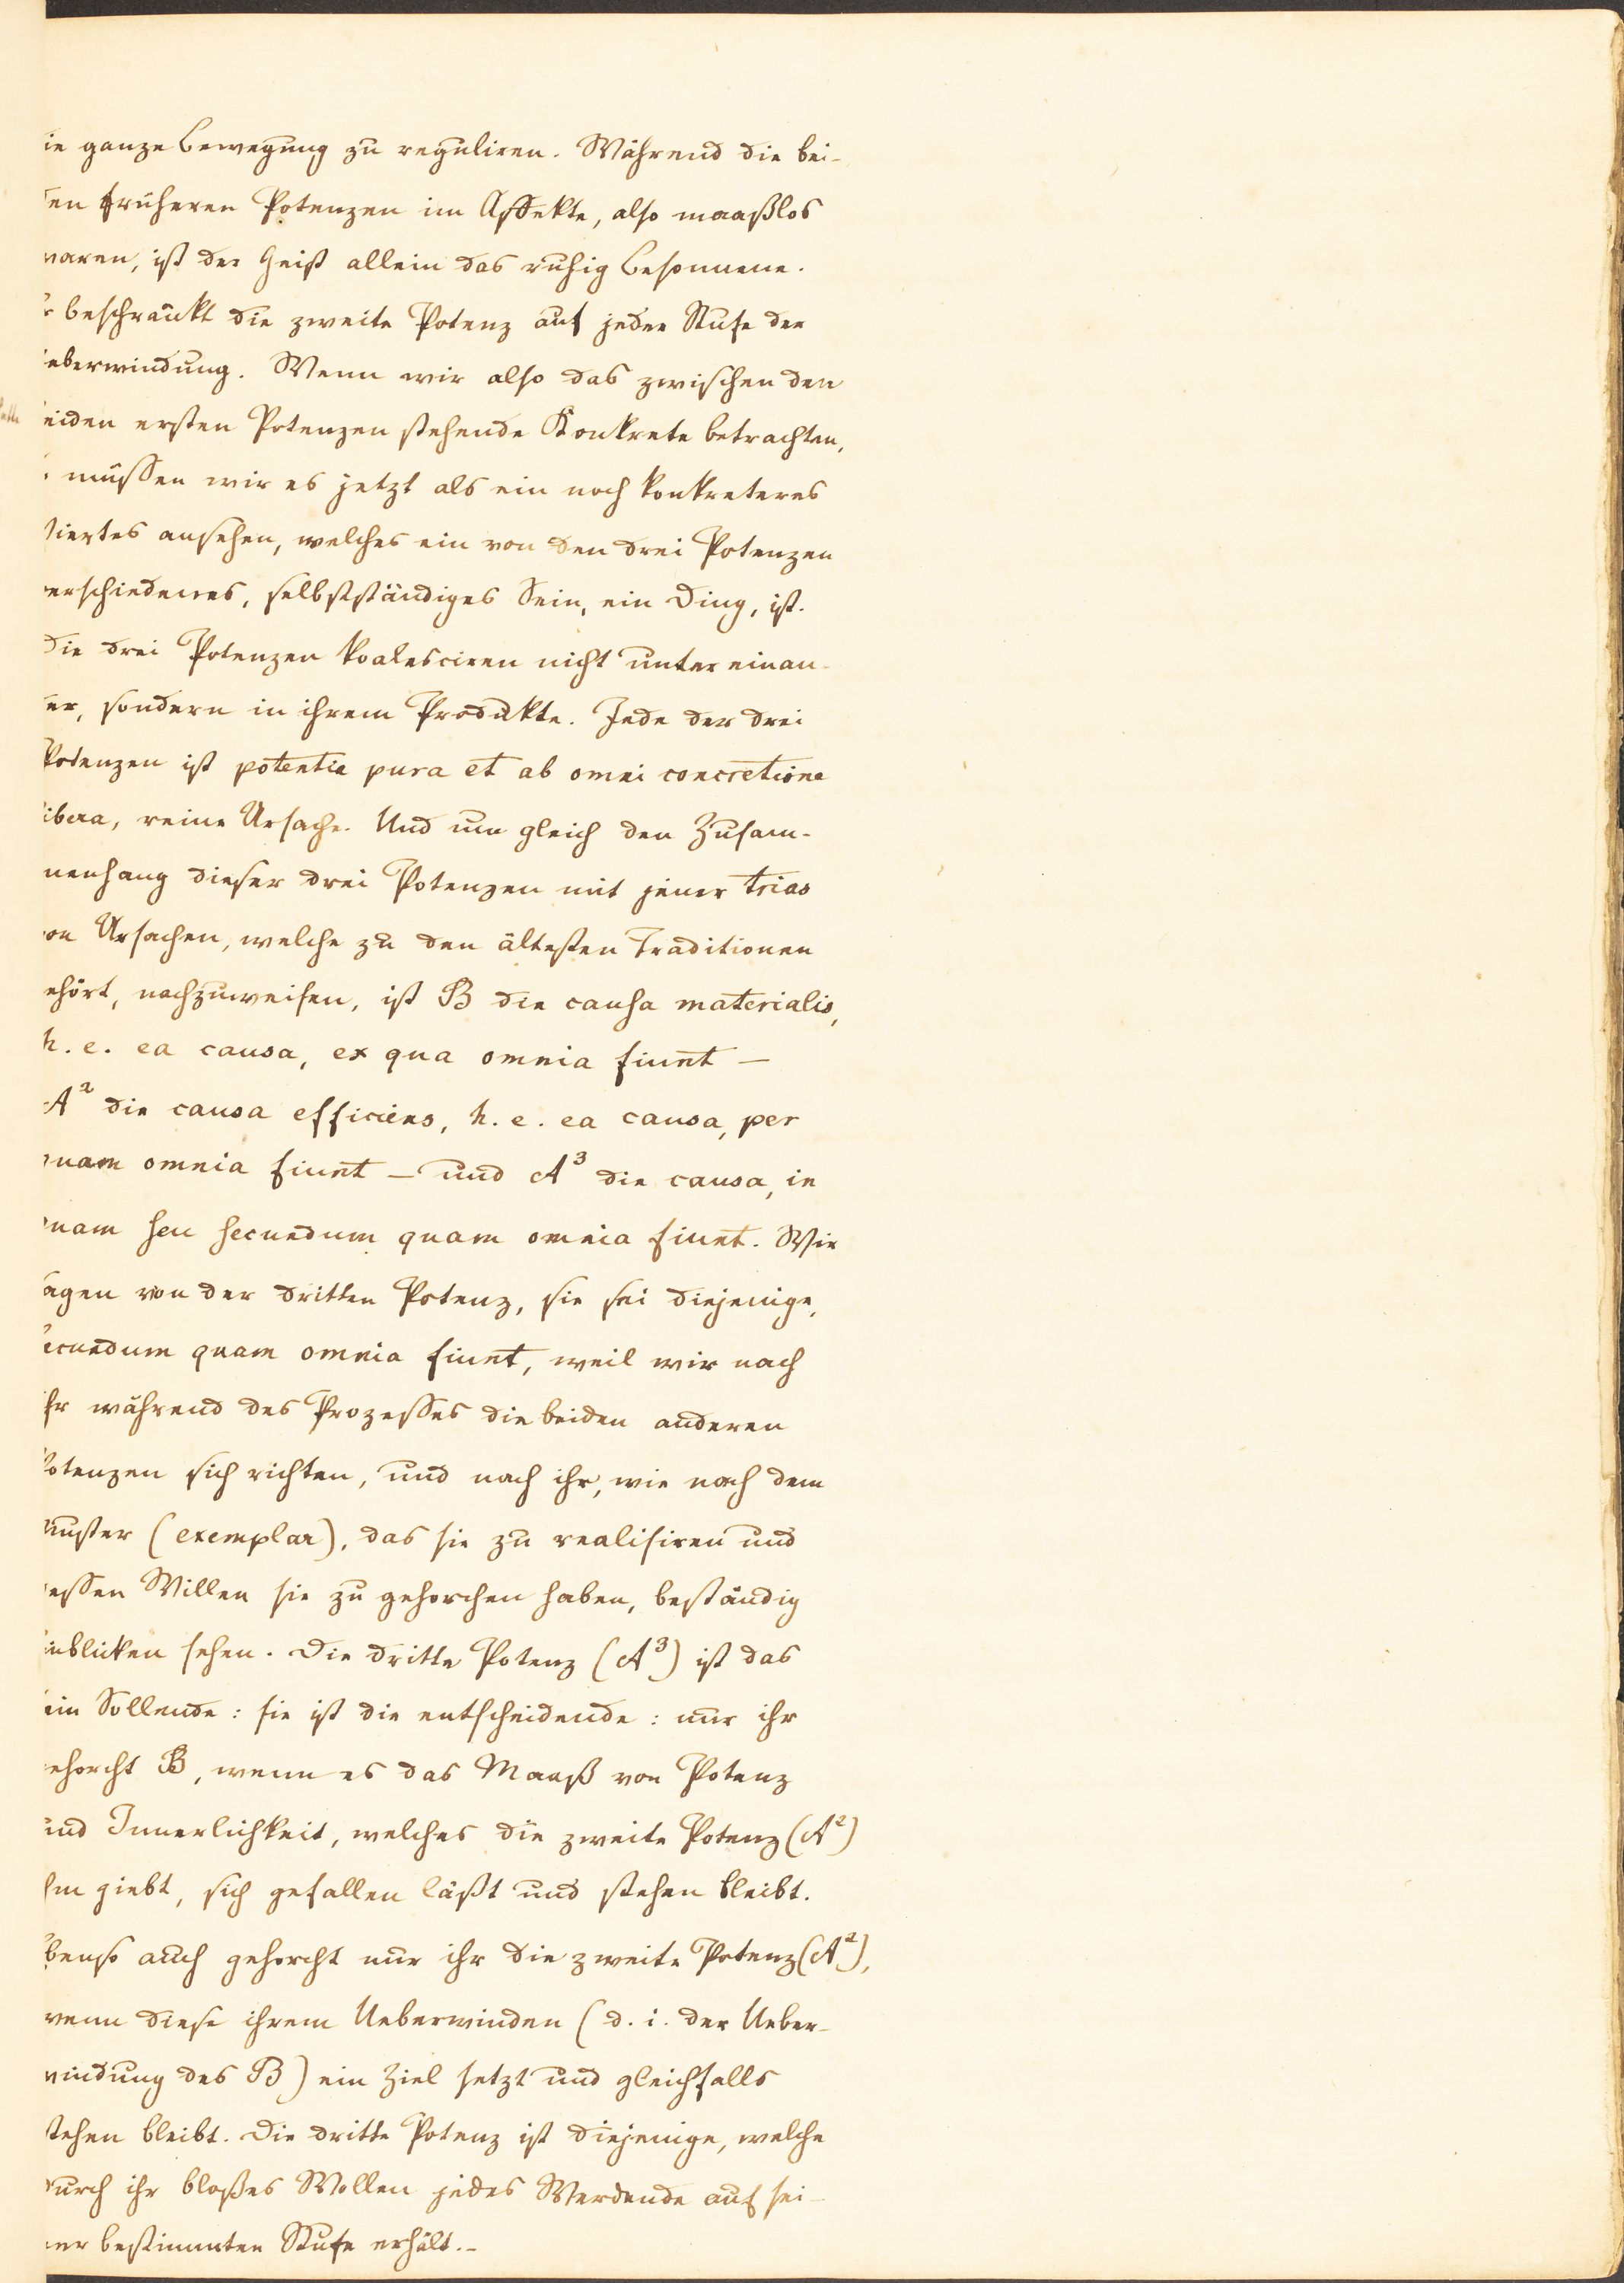 ie ganze Bewegung zu reguliren. Während die bei-
en früheren Potenzen im Affekte, also maaßlos
waren, ist der Geist allein das ruhig Besonnene.
r beschränkt die zweite Potenz auf jeder Stufe der
eberwindung. Wenn wir also das zwischen den
eiden ersten Potenzen stehende Konkrete betrachten,
müssen wir es jetzt als ein noch konkreteres
iertes ansehen, welches ein von den drei Potenzen
erschiedenes, selbstständiges Sein, ein Ding, ist.
Die drei Potenzen koalesciren nicht unter einan-
er, sondern in ihrem Produkte. Jede der drei
Potenzen ist potentia pura et ab omni concretione
ibera, reine Ursache. Und um gleich den Zusam-
menhang dieser drei Potenzen mit jener trias
on Ursachen, welche zu den ältesten Traditionen
ehört, nachzuweisen, ist B die causa materialis,
h. e. ea causa, ex qua omnia fiunt —
A² die causa efficiens, h. e. ea causa, per
quam omnia fiunt — und A³ die causa, in
quam seu secundum quam omnia fiunt. Wir
agen von der dritten Potenz, sie sei diejenige,
ecundum quam omnia fiunt, weil wir nach
hr während des Prozesses die beiden anderen
Potenzen sich richten, und nach ihr, wie nach dem
Muster (exemplar), das sie zu realisiren und
essen Willen sie zu gehorchen haben, beständig
inblicken sehen. Die dritte Potenz (A³) ist das
ein Sollende: sie ist die entscheidende: nur ihr
ehorcht B, wenn es das Maaß von Potenz
und Innerlichkeit, welches die zweite Potenz (A²)
hm giebt, sich gefallen läßt und stehen bleibt.
benso auch gehorcht nur ihr die zweite Potenz (A²),
wenn diese ihrem Ueberwinden (d. i. der Ueber-
windung des B) ein Ziel setzt und gleichfalls
stehen bleibt. Die dritte Potenz ist diejenige, welche
durch ihr bloßes Wollen jedes Werdende auf sei-
ner bestimmten Stufe erhält.–